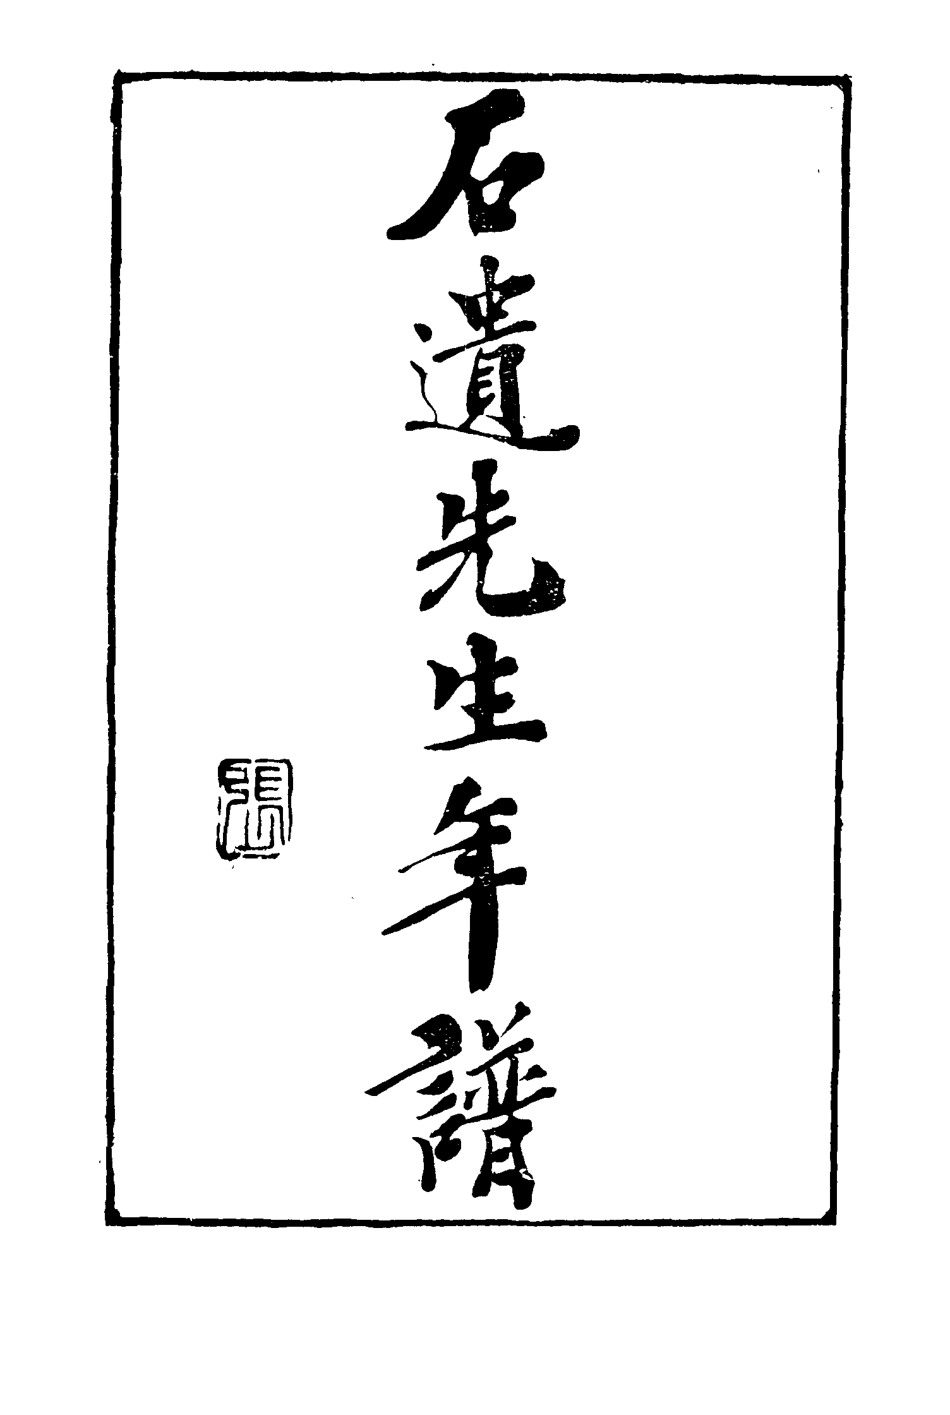 石遺先生年譜
張